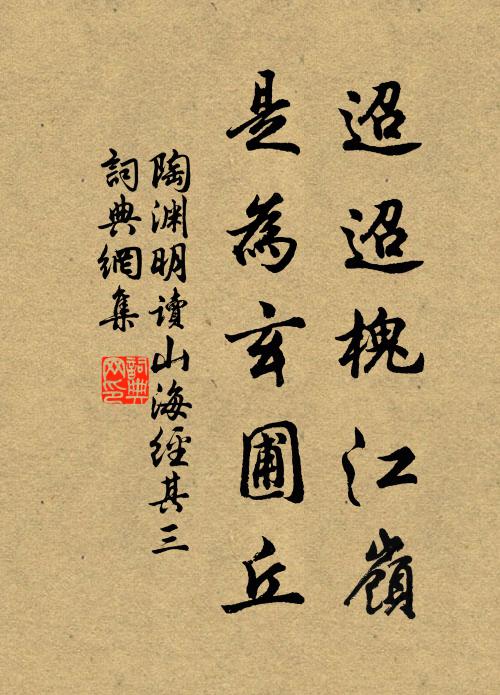 迢迢槐江嶺
是為玄圃丘
陶渊明讀山海經其三
詞典網集
詞典網印